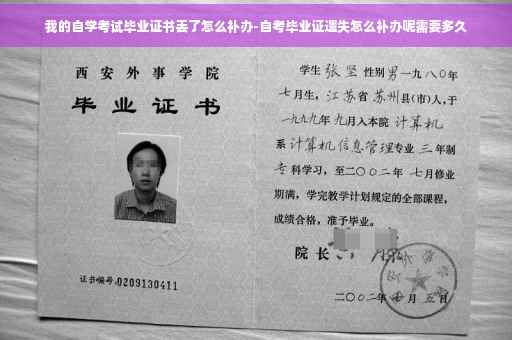 我的自学考试毕业证书丢了怎么补办-自考毕业证遗失怎么补办呢需要多久
西安外事学院
毕业证书
证书编号:0209130411
学生 张坚 性别 男 一九八〇年
七月生，江苏省 苏州县(市)人，于
一九九九年 九月入本院 计算机
系 计算机信息管理专业 三 年制
专 科学习，至二〇〇二年 七月修业
期满，学完教学计划规定的全部课程，
成绩合格，准予毕业。
院长
二〇〇二年 月 五日